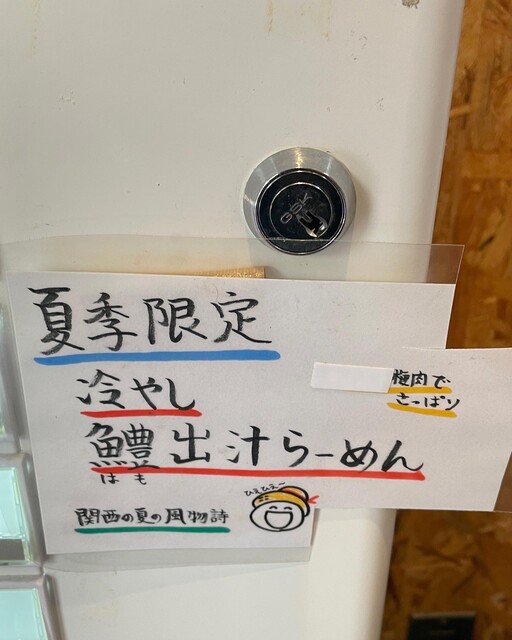 GSK
夏季限定
冷やし
梅肉で
さっぱり
鱧出汁らーめん
はも
関西の夏の風物詩
ひえひえー